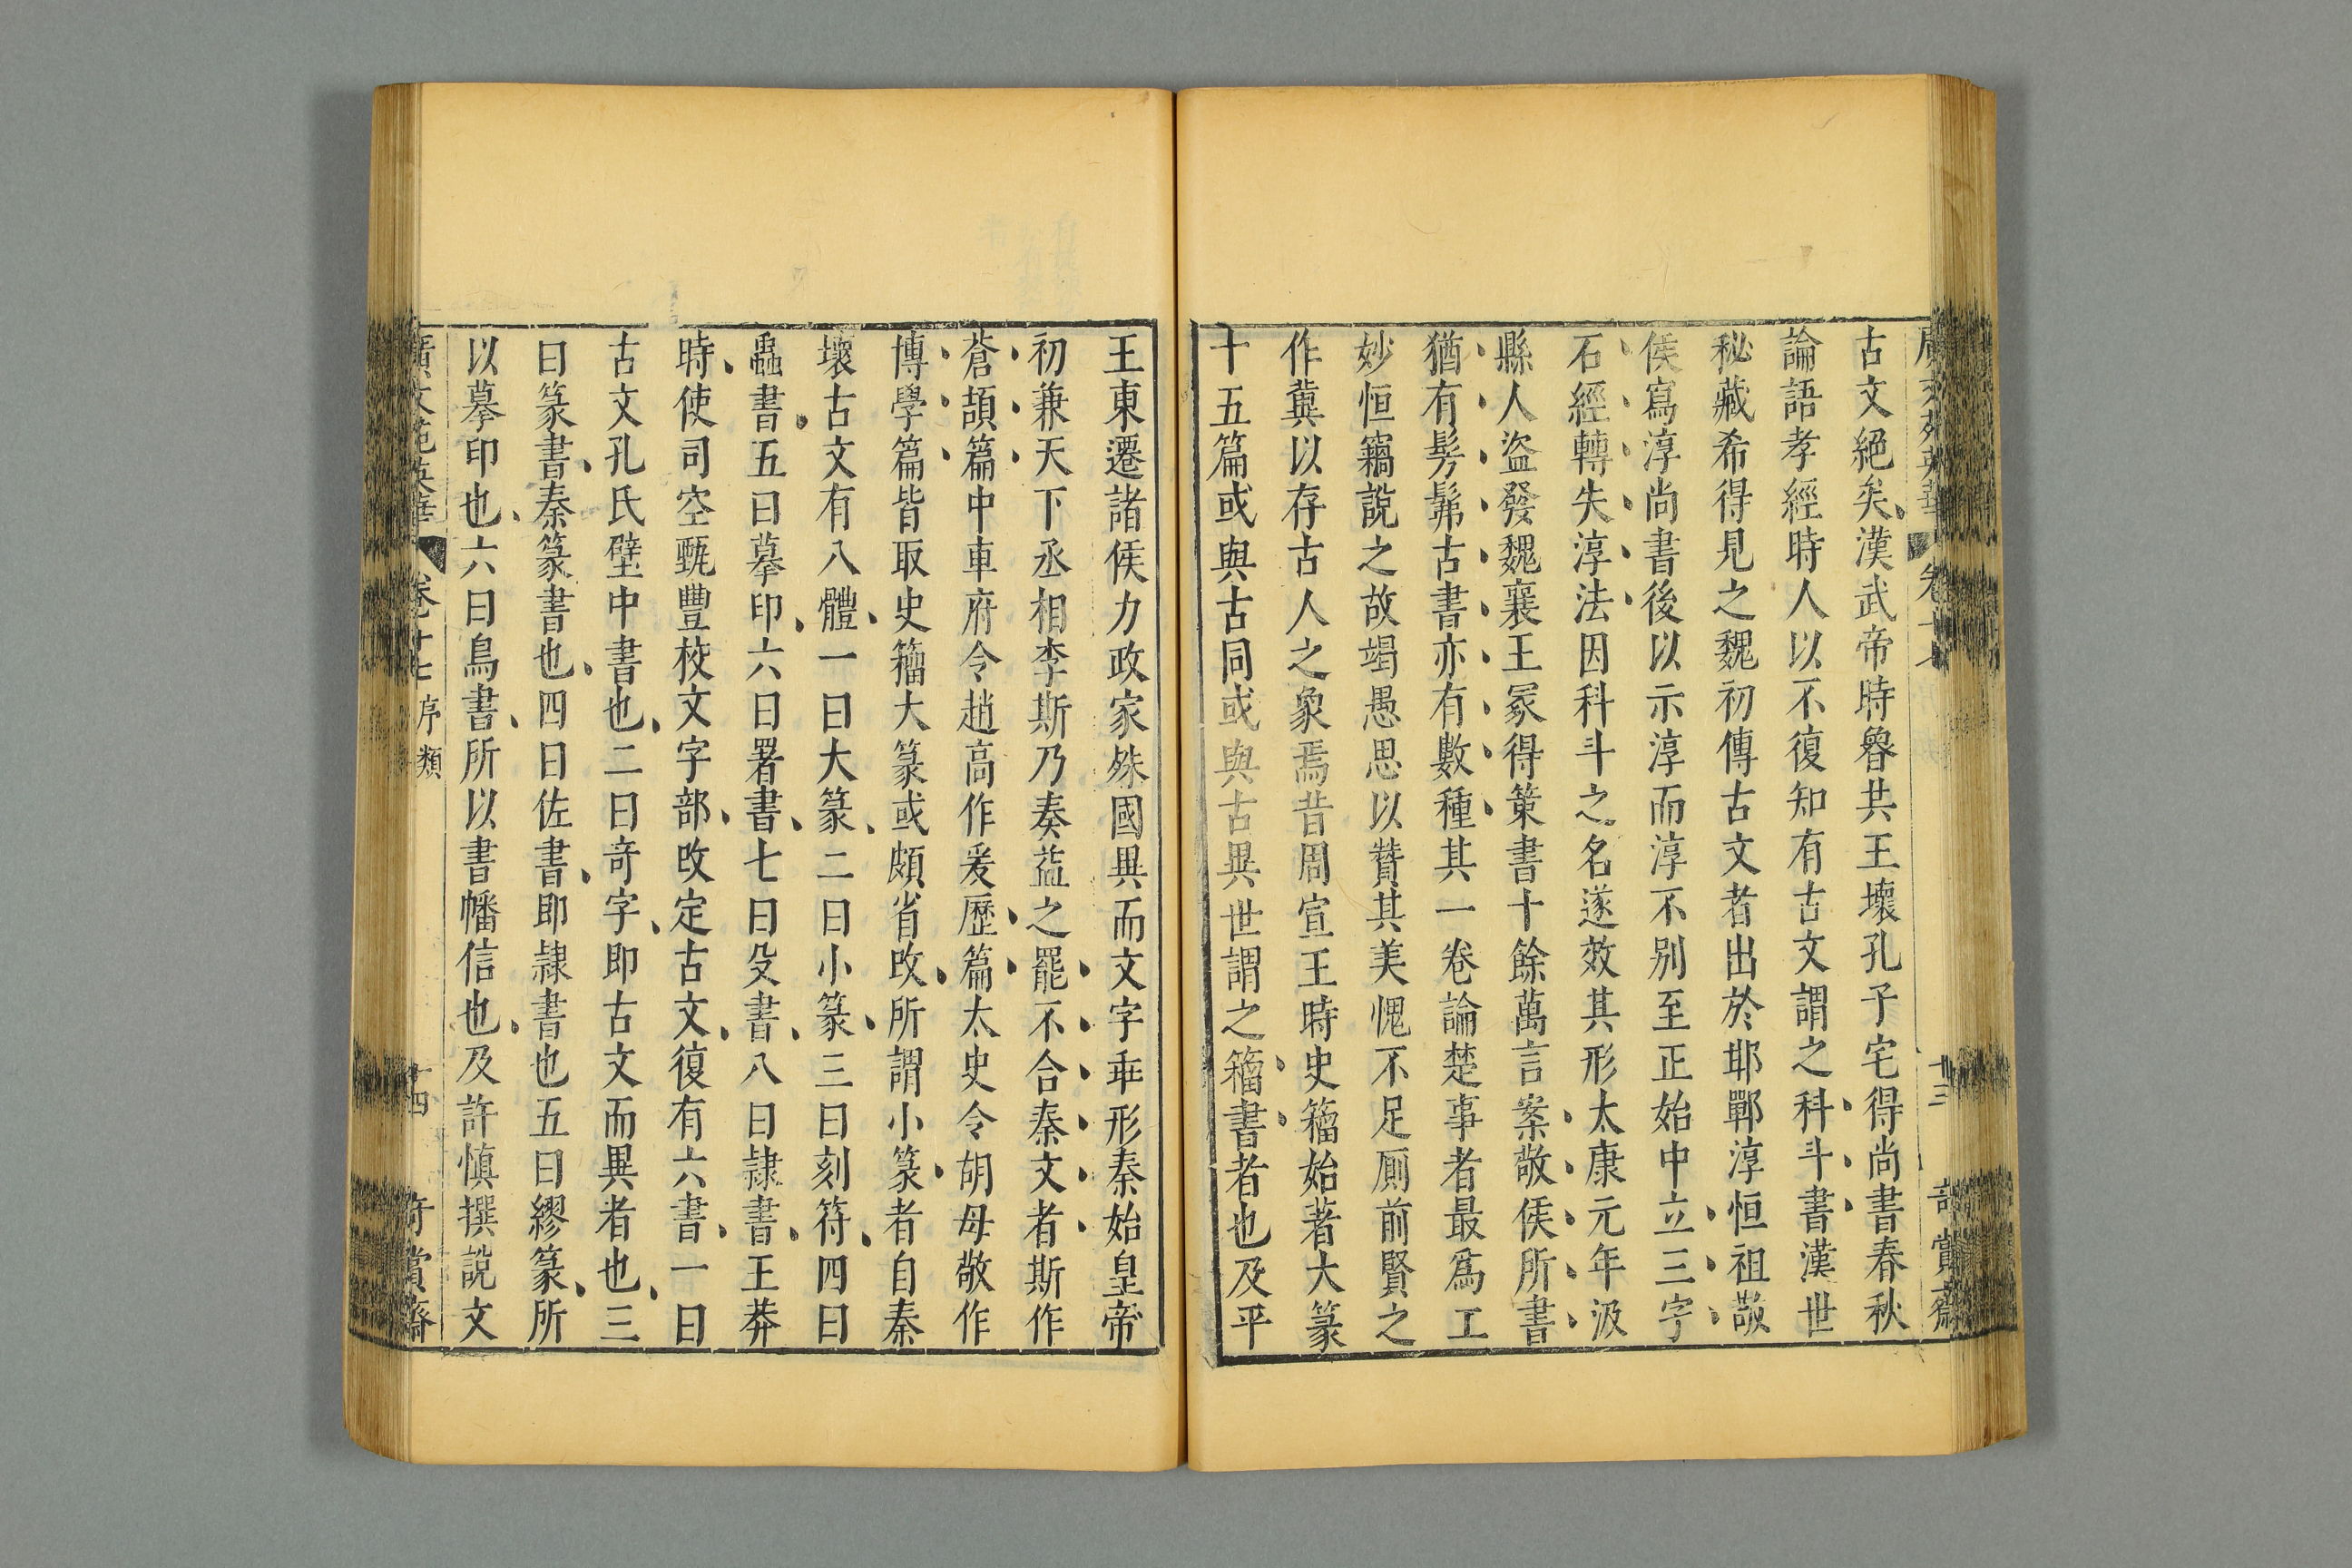 古文絕矣漢武帝時魯共王壞孔子宅得尚書春秋
論語孝經時人以不復知有古文謂之科斗書漢世
秘藏希得見之魏初傳古文者出於邯鄲淳恒祖敬
侯寫淳尚書後以示淳而淳不别至正始中立三字
石經轉失淳法因科斗之名遂效其形太康元年汲
縣人盜發魏襄王冢得策書十餘萬言案敬侯所書
猶有髣髴古書亦有數種其一卷論楚事者最爲工
妙恒竊說之故竭愚思以贊其美愧不足厠前賢之
作冀以存古人之象焉昔周宣王時史籀始著大篆
十五篇或與古同或與古異世謂之籀書者也及平
王東遷諸侯力政家殊國異而文字乖形秦始皇帝
初兼天下丞相李斯乃奏益之罷不合秦文者斯作
蒼頡篇中車府令趙高作爰歷篇太史令胡母敬作
博學篇皆取史籀大篆或頗省改所謂小篆者自秦
壞古文有八體一曰大篆二曰小篆三曰刻符四曰
蟲書五曰摹印六曰署書七曰殳書八曰隷書王莽
時使司空甄豐校文字部改定古文復有六書一曰
古文孔氏壁中書也二曰竒字即古文而異者也三
曰篆書秦篆書也四曰佐書即隷書也五曰繆篆所
以摹印也六曰鳥書所以書幡信也及許慎撰說文
廣文苑英華 卷十七 序類 十四 奇賞齋